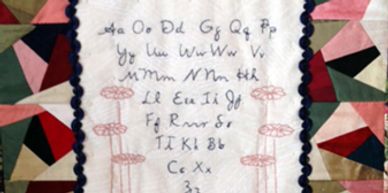 Aa Oo Dd Gg Qq Pp
Yy Uu Ww Ww Vv
Mm Nn Hh
Ll Ee Ii Jj
Ff Rr Ss
Tt Kk Bb
Cc Xx
Zz